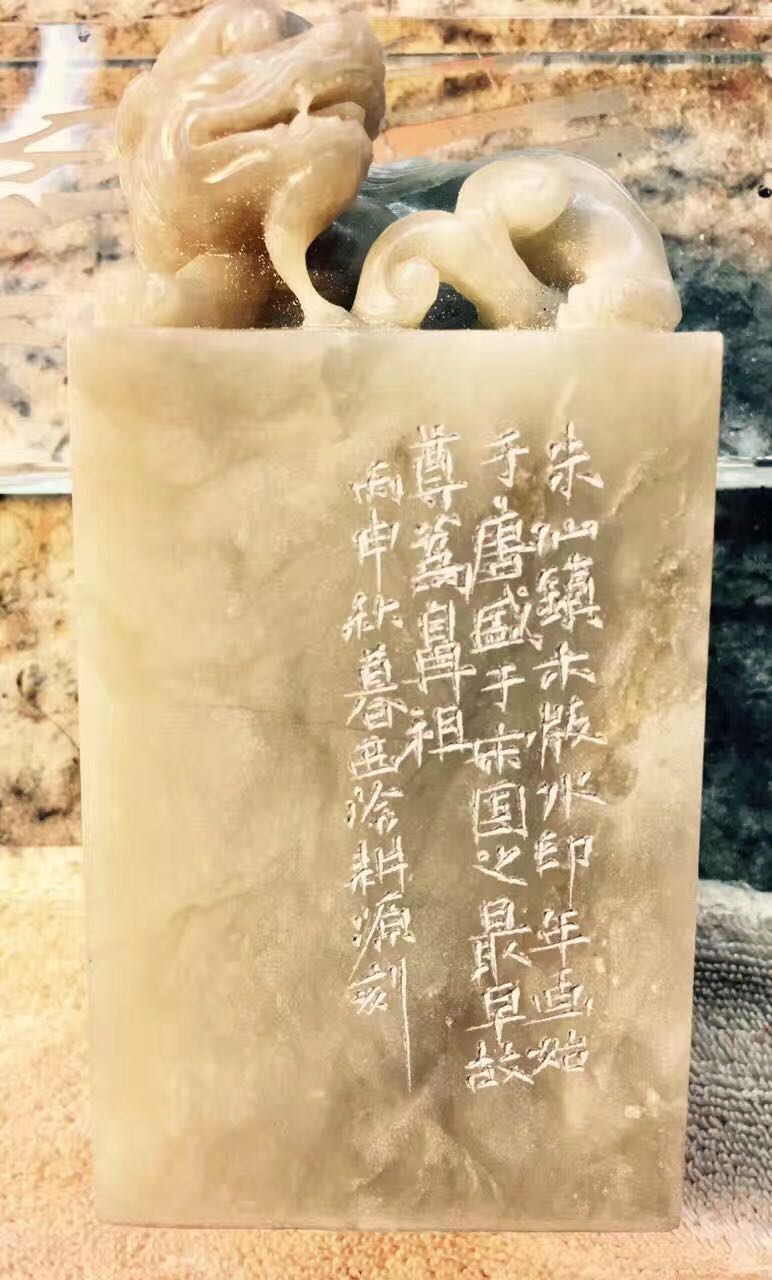 朱仙鎮木版水印年画始
于唐盛于宋国之最早故
尊為鼻祖
丙申秋暮西泠耕源刻